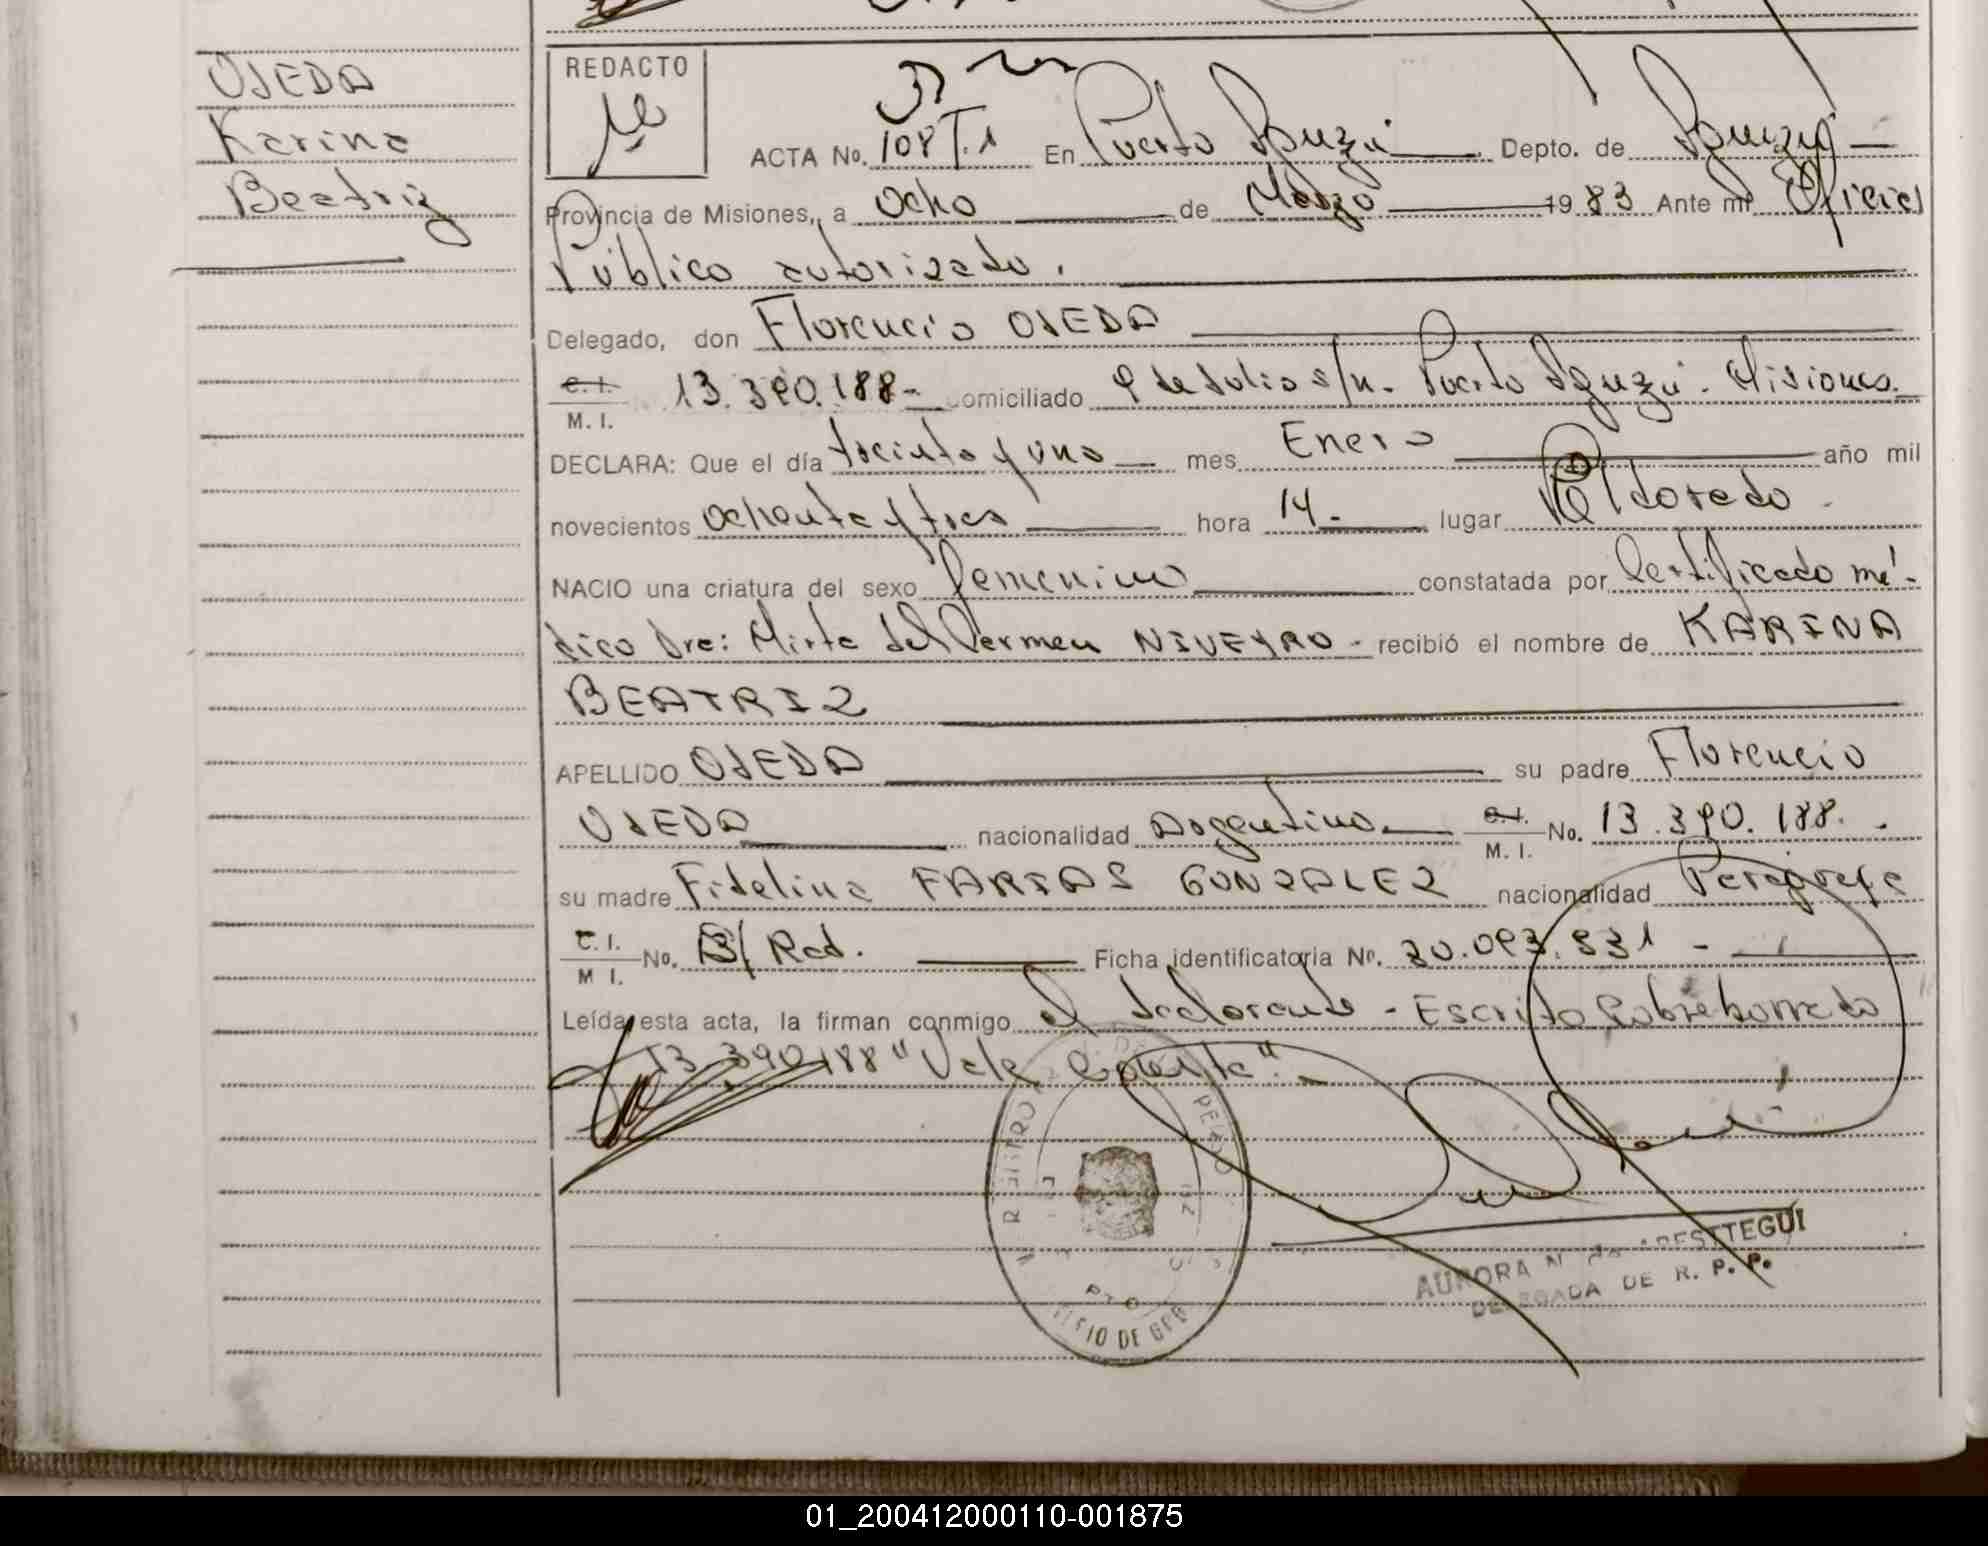 OJEDA
Karina
Beatriz
REDACTO
ACTA No. 108 T.1 En Puerto Iguazú Depto. de Iguazú
Provincia de Misiones, a ocho de Marzo 1983 Ante mi Oficial
Público autorizado.
Delegado, don Florencio OJEDA
C. I.
M. I. 13.390.188- domiciliado 9 de Julio s/n. Puerto Iguazú. Misiones.
DECLARA: Que el día treinta y uno mes Enero año mil
novecientos ochenta y tres hora 14.- lugar Eldorado.
NACIO una criatura del sexo femenino constatada por Certificado mé-
dico Dra: Mirta del Carmen NIVEYRO - recibió el nombre de KARINA
BEATRIZ
APELLIDO OJEDA su padre Florencio
OJEDA nacionalidad Argentino C. I.
M. I. No. 13.390.188.
su madre Fidelina FARIAS GONZALEZ nacionalidad Paraguaya
C. I.
M I. No. B/ Rad. Ficha identificatoria No. 30.093.931 -
Leída esta acta, la firman conmigo el declarante - Escrito Sobreborrado
13.390.188 "Vale
REGISTRO
PTO
DE
AURORA N. de TEGUI
DELEGADA DE R. P. P.
01_200412000110-001875